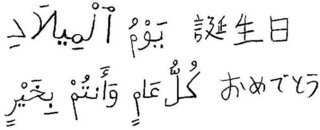 يَوْمُ ٱلْمِيلَادِ 誕生日
كُلُّ عَامٍ وَأَنتُمْ بِخَيْرٍ おめでとう